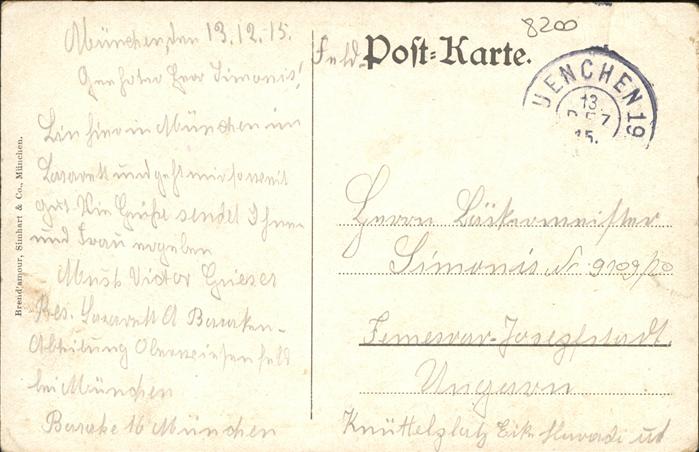 München, den 13.12.15.
Geehrter Herr Simonis!
Bin hier in München im
Lazarett und geht mir soweit
gut. Viele Grüße sendet Ihnen
und Frau ergeben
Musk Victor Grieser
Res. Lazarett A Baracken-
Abteilung Oberwiesenfeld
bei München
Baracke 16 München
Brend'amour, Simhart & Co., München.
8200
Feld-Post-Karte.
MUENCHEN 19
13
DEZ
15.
Herrn Bäckermeister
Simonis Nr.
Temesvar-Josefstadt.
Ungarn
Knüttelplatz Eck Hunyadi út